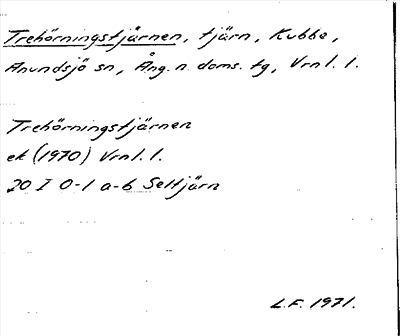 Trehörningstjärnen, tjärn, Kubbe,
Anundsjö sn, Ång. n. doms. tg, Vrnl. l.
Trehörningstjärnen
ek (1970) Vrnl. l.
20 I 0-1 a-b Seltjärn
L.F. 1971.